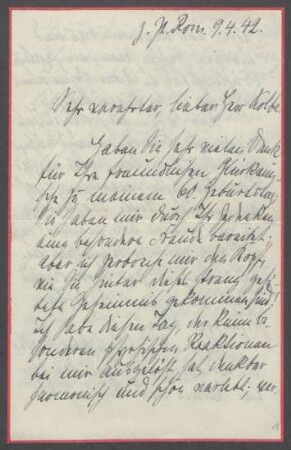 z. Zt. Rom. 9.4.42.
Sehr verehrter, lieber Herr Kolbe.
Haben Sie sehr vielen Dank
für Ihre freundlichen Glückwün-
sche zu meinem 60. Geburtstag.
Sie haben mir durch Ihr Gedenken
eine besondere Freude bereitet;
aber ich zerbreche mir den Kopf,
wie Sie hinter dieses streng gehü-
tete Geheimnis gekommen sind!
Ich habe diesen Tag, der keine be-
sonderen Reaktionen
bei mir ausgelöst hat, denkbar
harmonisch und schön verlebt; wir